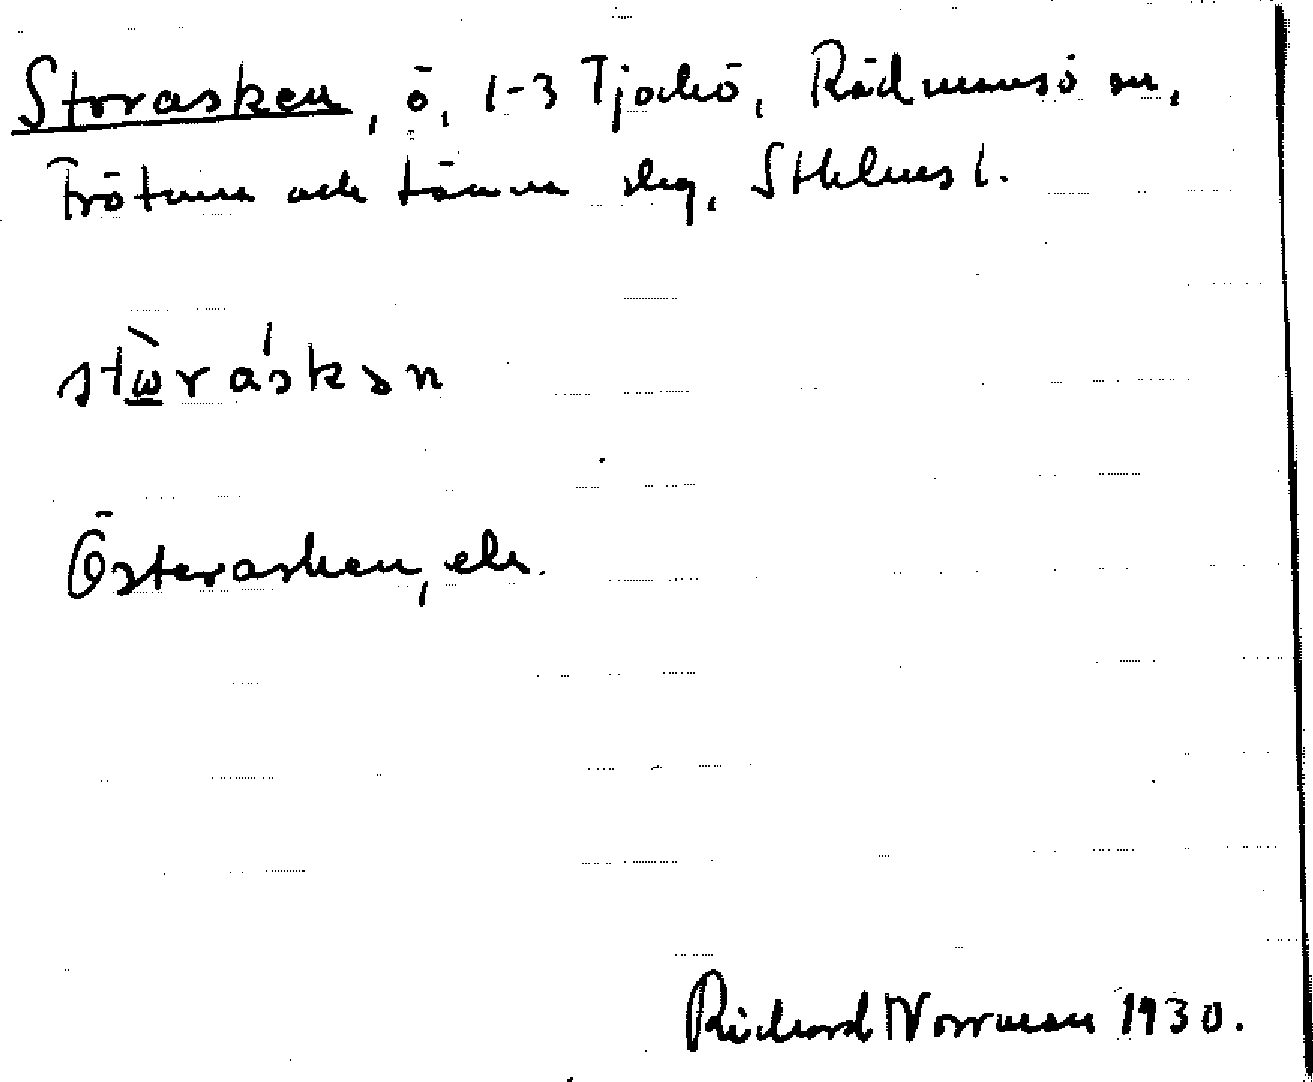 Storasken, ö, 1-3 Tjockö, Rådmansö sn,
Frötuna och Länna skg, Sthlms l.
stὼráskən
Österasken, ek.
Richard Norrman 1930.